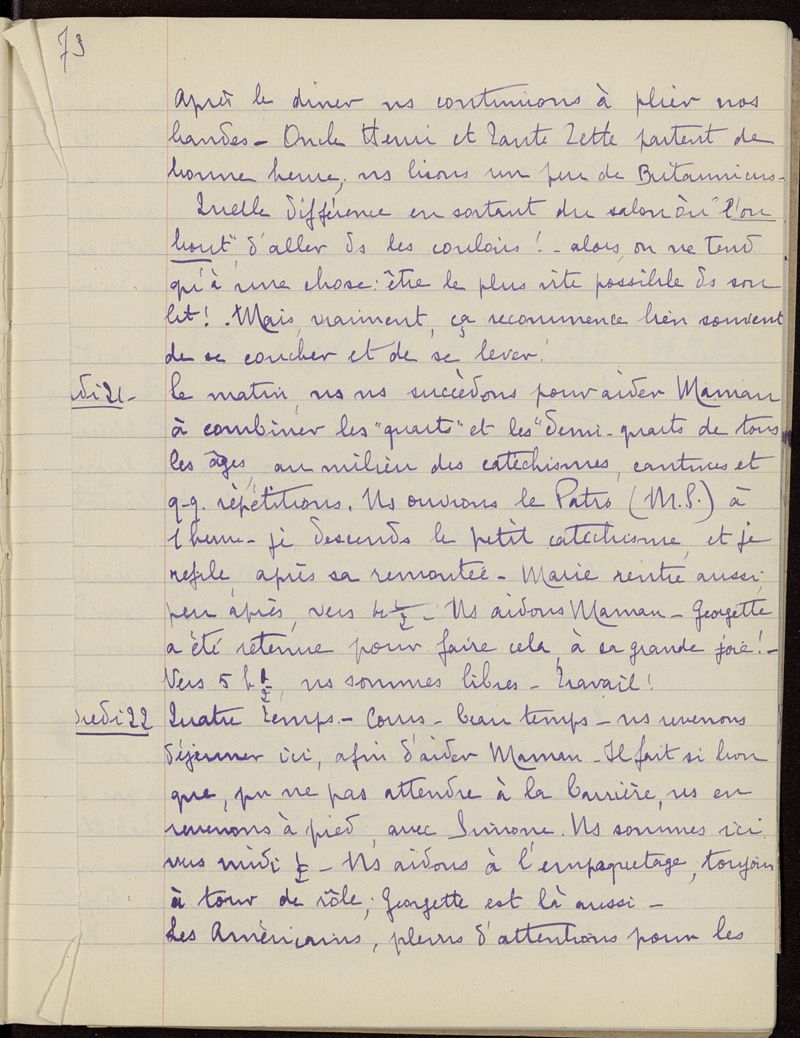 73
Après le diner ns continuions à plier nos
bandes - Oncle Henri et Tante Zette partent de
bonne heure, ns lisons un peu de Britannicus -
Quelle différence en sortant du salon où "l'on
bout" d'aller ds les couloirs ! - alors, on ne tend
qu'à une chose : être le plus vite possible ds son
lit ! . Mais, vraiment, ça recommence bien souvent
de se coucher et de se lever !
di 21 - le matin, ns ns succèdons pour aider Maman
à combiner les "quarts" et les "demi-quarts de tous
les âges, au milieu des catéchismes, cantines et
q-q. répétitions. Ns ouvrons le Patro (M.S.) à
1 heure - je descends le petit catéchisme, et je
refile, après sa remontée - Marie rentre aussi,
peu après, vers 4 1/2 - Ns aidons Maman - Georgette
a été retenue pour faire cela, à sa grande joie ! -
Vers 5 h 1/2, ns sommes libres - Travail !
dredi 22 Quatre temps - Cours - beau temps - ns revenons
déjeuner ici, afin d'aider Maman - Il fait si bon
que, pr ne pas attendre à la barrière, ns en
revenons à pied, avec Simone. Ns sommes ici
vers midi 1/2 - Ns aidons à l'empaquetage, toujours
à tour de rôle ; Georgette est là aussi -
Les Américains, pleins d'attentions pour les